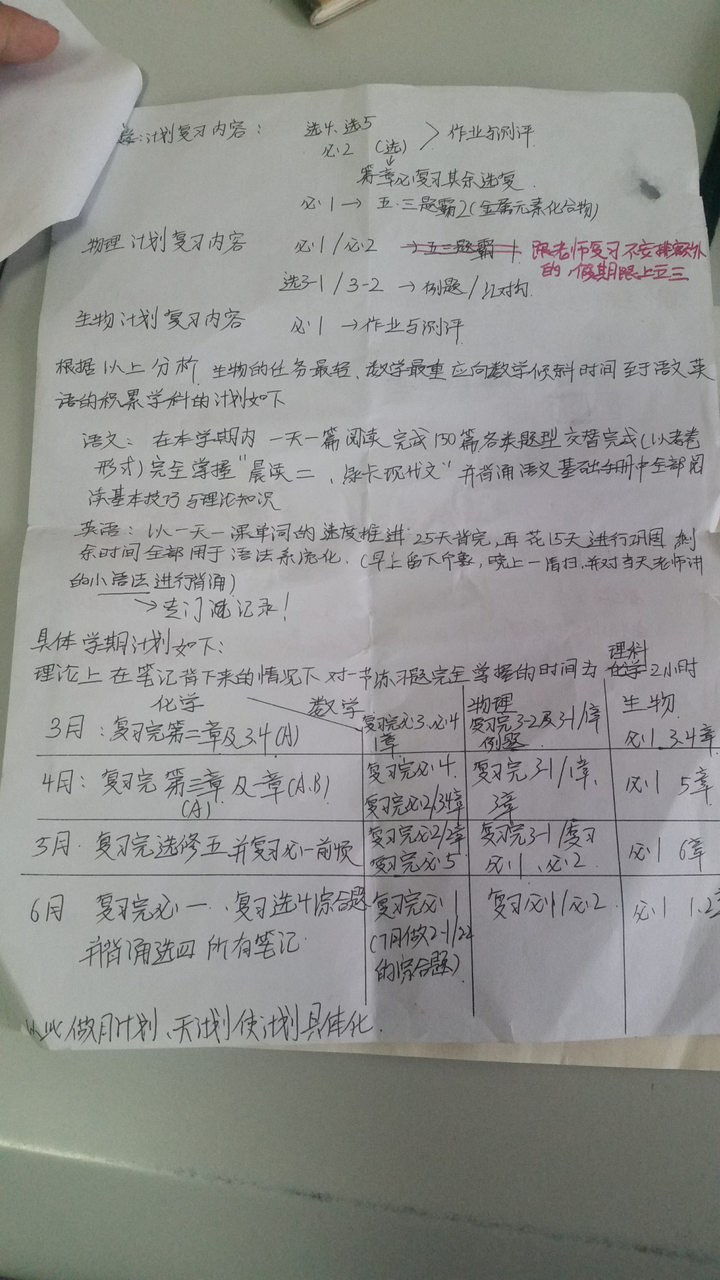 计划复习内容： 选4、选5 > 作业与测评
必2 (选)
第一章必复习其余选复
必1 → 五·三题霸2(金属元素化合物)
物理计划复习内容 必1/必2 →五三题霸 跟老师复习不安排额外
的,假期跟上五三
选3-1/3-2 → 例题/红对勾
生物计划复习内容 必1 →作业与测评
根据以上分析,生物的任务最轻、数学最重应向数学倾斜时间至于语文英
语的积累学科的计划如下
语文：在本学期内 一天一篇阅读 完成150篇各类题型交替完成(以考卷
形式)完全掌握"晨读二、绿卡现代文"并背诵语文基础手册中全部阅
读基本技巧与理论知识
英语：以一天一课单词的速度推进 25天背完,再花15天进行巩固 剩
余时间全部用于语法系统化.(早上留下个数,晚上一清扫.并对当天老师讲
的小语法进行背诵)
→专门建记录！
具体学期计划如下：
理论上在笔记背下来的情况下对一节练习题完全掌握的时间为 理科 化学 2小时
化学 数学 物理 生物
3月：复习完第二章及3.4(A) 复习完必3、必4 1章 复习完3-2及3-1/1章 例题 必1 3.4章
4月：复习完第三章及一章(A.B) 复习完必4. 复习完3-1/1章、 必1 5章
(A) 复习完必2/3.4章 3章
5月.复习完选修五并复习必一前 复习完必2/2章 复习完3-1/复习 必1 6章
复习完必5 必1、必2
6月 复习完必一、复习选4综合题 复习完必1 复习必1/必2 必1 1.2
并背诵选四所有笔记. (7月做2-1/22
的综合题)
以此做月计划、天计划使计划具体化.